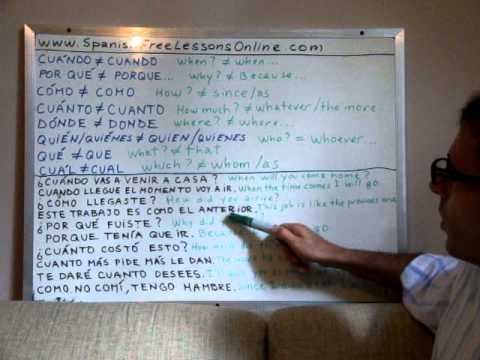 www.Spanis FreeLessonsOnline.com
CUÁNDO ≠ CUANDO when? ≠ when...
POR QUÉ ≠ PORQUE... Why? ≠ Because...
CÓMO ≠ COMO How? ≠ since/as
CUÁNTO ≠ CUANTO How much? ≠ whatever/the more
DÓNDE ≠ DONDE where? ≠ where...
QUIÉN/QUIÉNES ≠ QUIEN/QUIENES who? = whoever...
QUÉ ≠ QUE what? ≠ that
CUÁL ≠ CUAL which? ≠ whom/as
¿CUÁNDO VAS A VENIR A CASA? When will you come home?
CUANDO LLEGUE EL MOMENTO VOY A IR. When the time comes I will go
¿CÓMO LLEGASTE? How did you arrive?
ESTE TRABAJO ES COMO EL ANTERIOR. This job is like the previous one
¿POR QUÉ FUISTE? Why did
PORQUE TENÍA QUE IR. Beca go.
¿CUÁNTO COSTÓ ESTO? How
CUANTO MÁS PIDE MÁS LE DAN. The more
TE DARÉ CUANTO DESEES. I
COMO NO COMÍ, TENGO HAMBRE. Since I